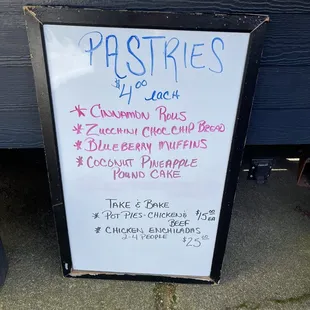 PASTRIES
$4.00 each
* CINNAMON ROLLS
* ZUCCHINI CHOC.CHIP BREAD
* BLUEBERRY MUFFINS
* COCONUT PINEAPPLE
POUND CAKE
TAKE & BAKE
* POT PIES-CHICKEN & $15.00 EA
BEEF
* CHICKEN ENCHILADAS
2-4 PEOPLE $25.00